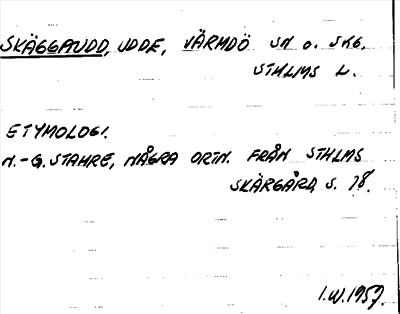 SKÄGGAUDD, UDDE, VÄRMDÖ SN O. SKG.
STHLMS L.
ETYMOLOGI.
N.-G. STAHRE, NÅGRA ORTN. FRÅN STHLMS
SKÄRGÅRD, S. 18.
I.W. 1957.